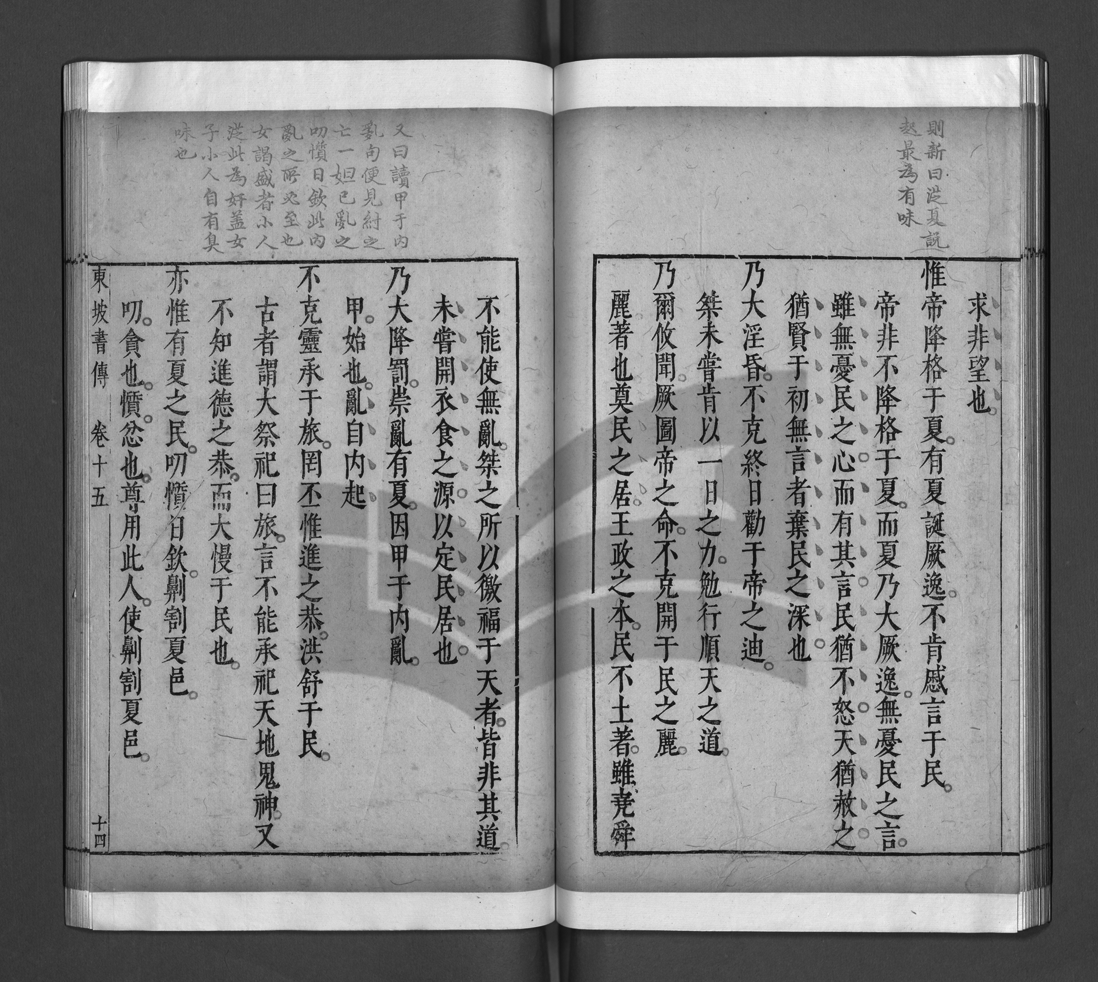 則新曰從夏說
起最為有味
求非望也
惟帝降格于夏有夏誕厥逸不肯慼言于民
帝非不降格于夏而夏乃大厥逸無憂民之言
雖無憂民之心而有其言民猶不怒天猶赦之
猶賢于初無言者棄民之深也
乃大淫昏不克終日勸于帝之迪
桀未嘗肯以一日之力勉行順天之道
乃爾攸聞厥圖帝之命不克開于民之麗
麗著也奠民之居王政之本民不土著雖堯舜
又曰讀甲于內
亂句便見紂之
亡一妲己亂之
叨懫日欽此內
亂之所必至也
女謁盛者小人
從此為奸蓋女
子小人自有臭
味也
不能使無亂桀之所以徼福于天者皆非其道
未嘗開衣食之源以定民居也
乃大降罰崇亂有夏因甲于內亂
甲始也亂自內起
不克靈承于旅罔丕惟進之恭洪舒于民
古者謂大祭祀曰旅言不能承祀天地鬼神又
不知進德之恭而大慢于民也
亦惟有夏之民叨懫日欽劓割夏邑
叨貪也懫忿也尊用此人使劓割夏邑
東坡書傳 卷十五 十四